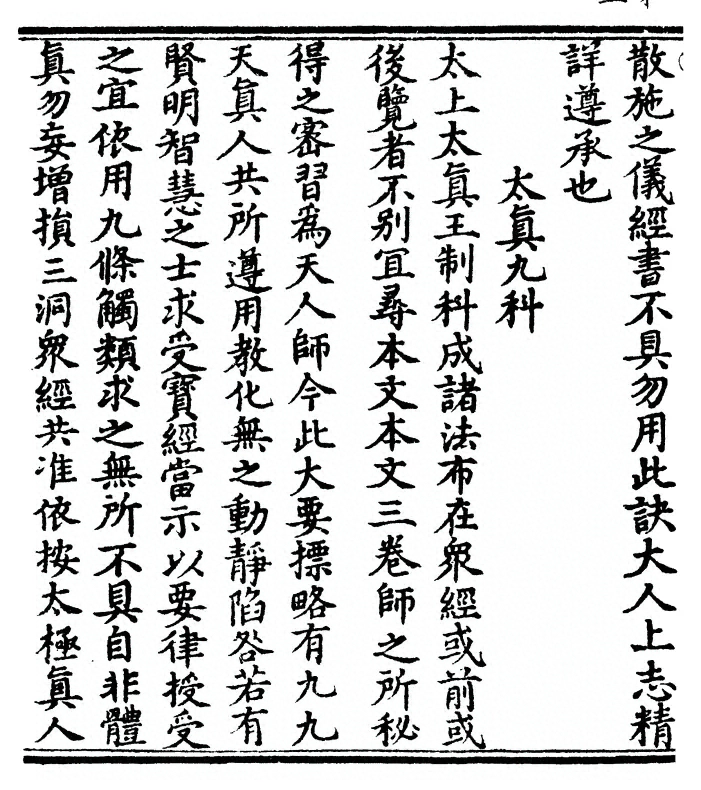 散施之儀經書不具勿用此訣大人上志精
詳遵承也
太眞九科
太上太眞王制科成諸法布在衆經或前或
後覽者不别冝尋本文本文三卷師之所秘
得之密習爲天人師今此大要摽略有九九
天眞人共所遵用教化無之動靜陷咎若有
賢明智慧之士求受寳經當示以要律授受
之宜依用九條觸類求之無所不具自非體
眞勿妄增損三洞衆經共准依按太極眞人